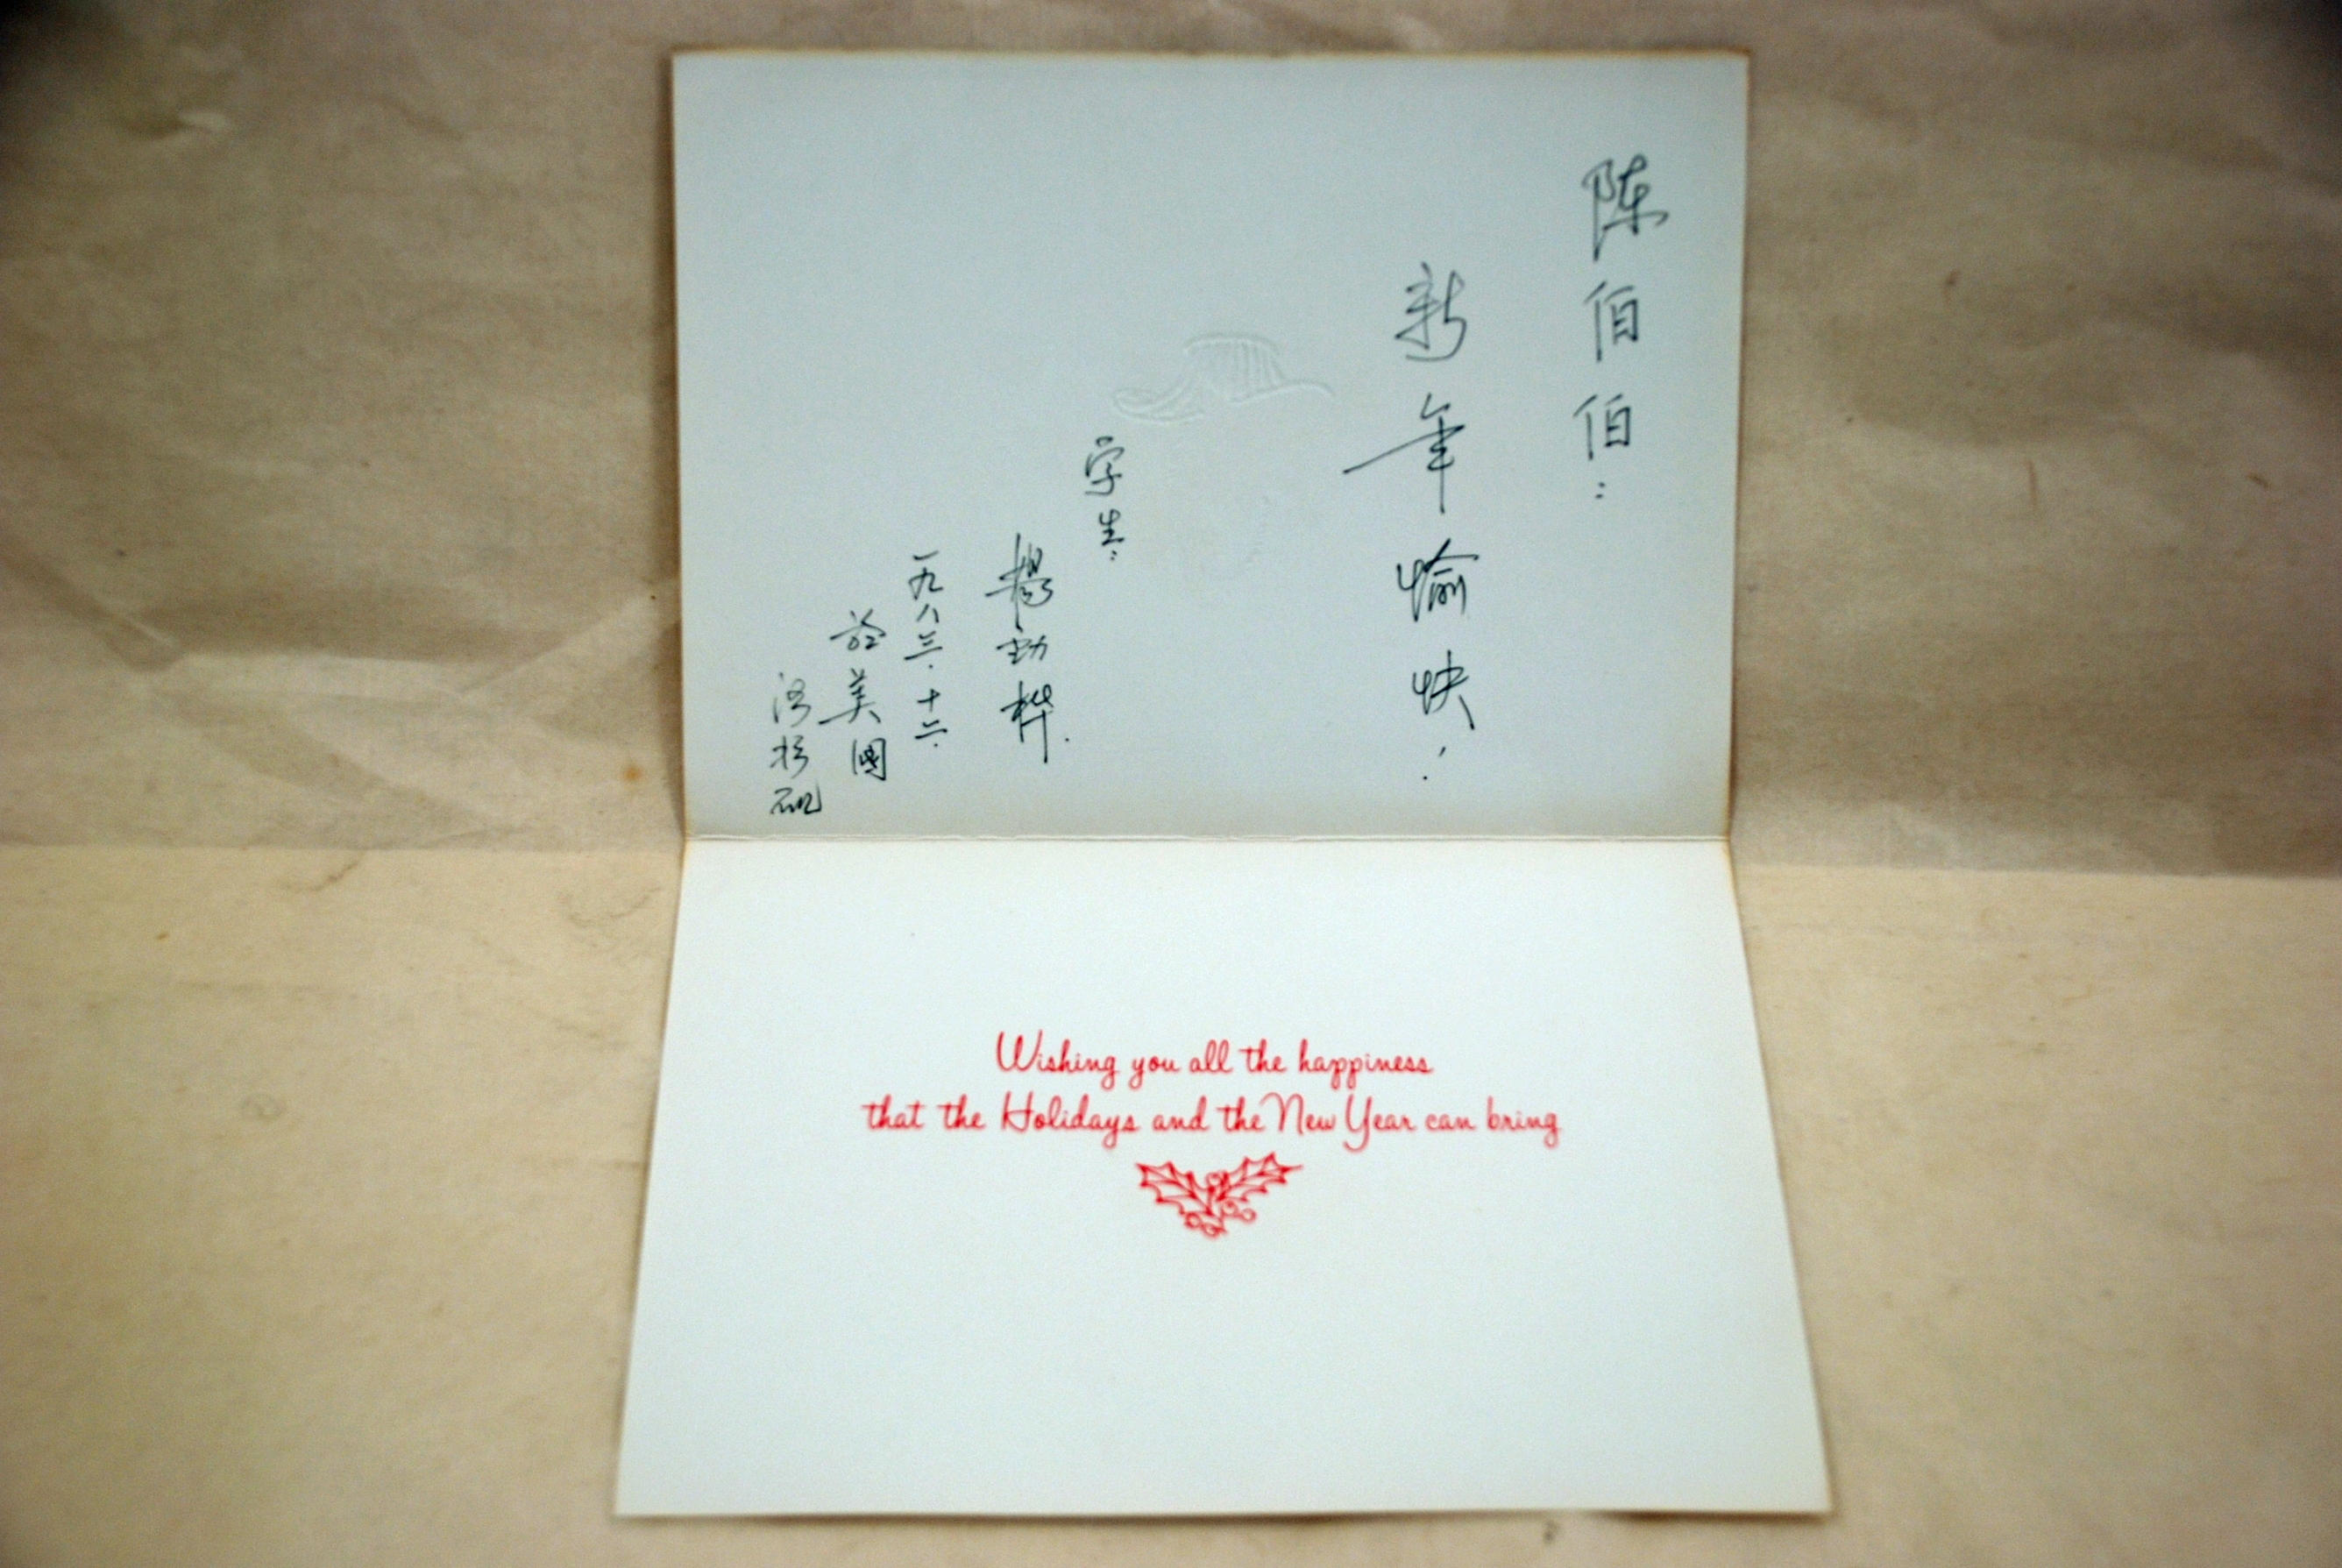 陈伯伯：
新年愉快！
学生：
楊劲桦.
一九八三.十二.
於美國
洛杉矶
Wishing you all the happiness
that the Holidays and the New Year can bring